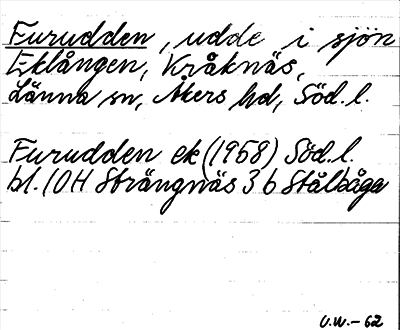 Furudden, udde i sjön
Eklången, Kråknäs,
Länna sn, Åkers hd, Söd. l.
Furudden ek (1958) Söd. l.
bl. 10H Strängnäs 3 b Stålbåga
U.W.-62